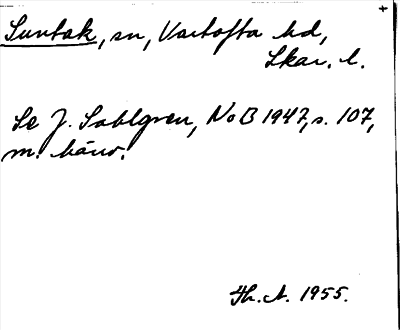 Suntak, sn, Vartofta hd,
Skar. l.
Se J. Sahlgren, NoB 1947, s. 107,
m. hänv.
Th. A. 1955.